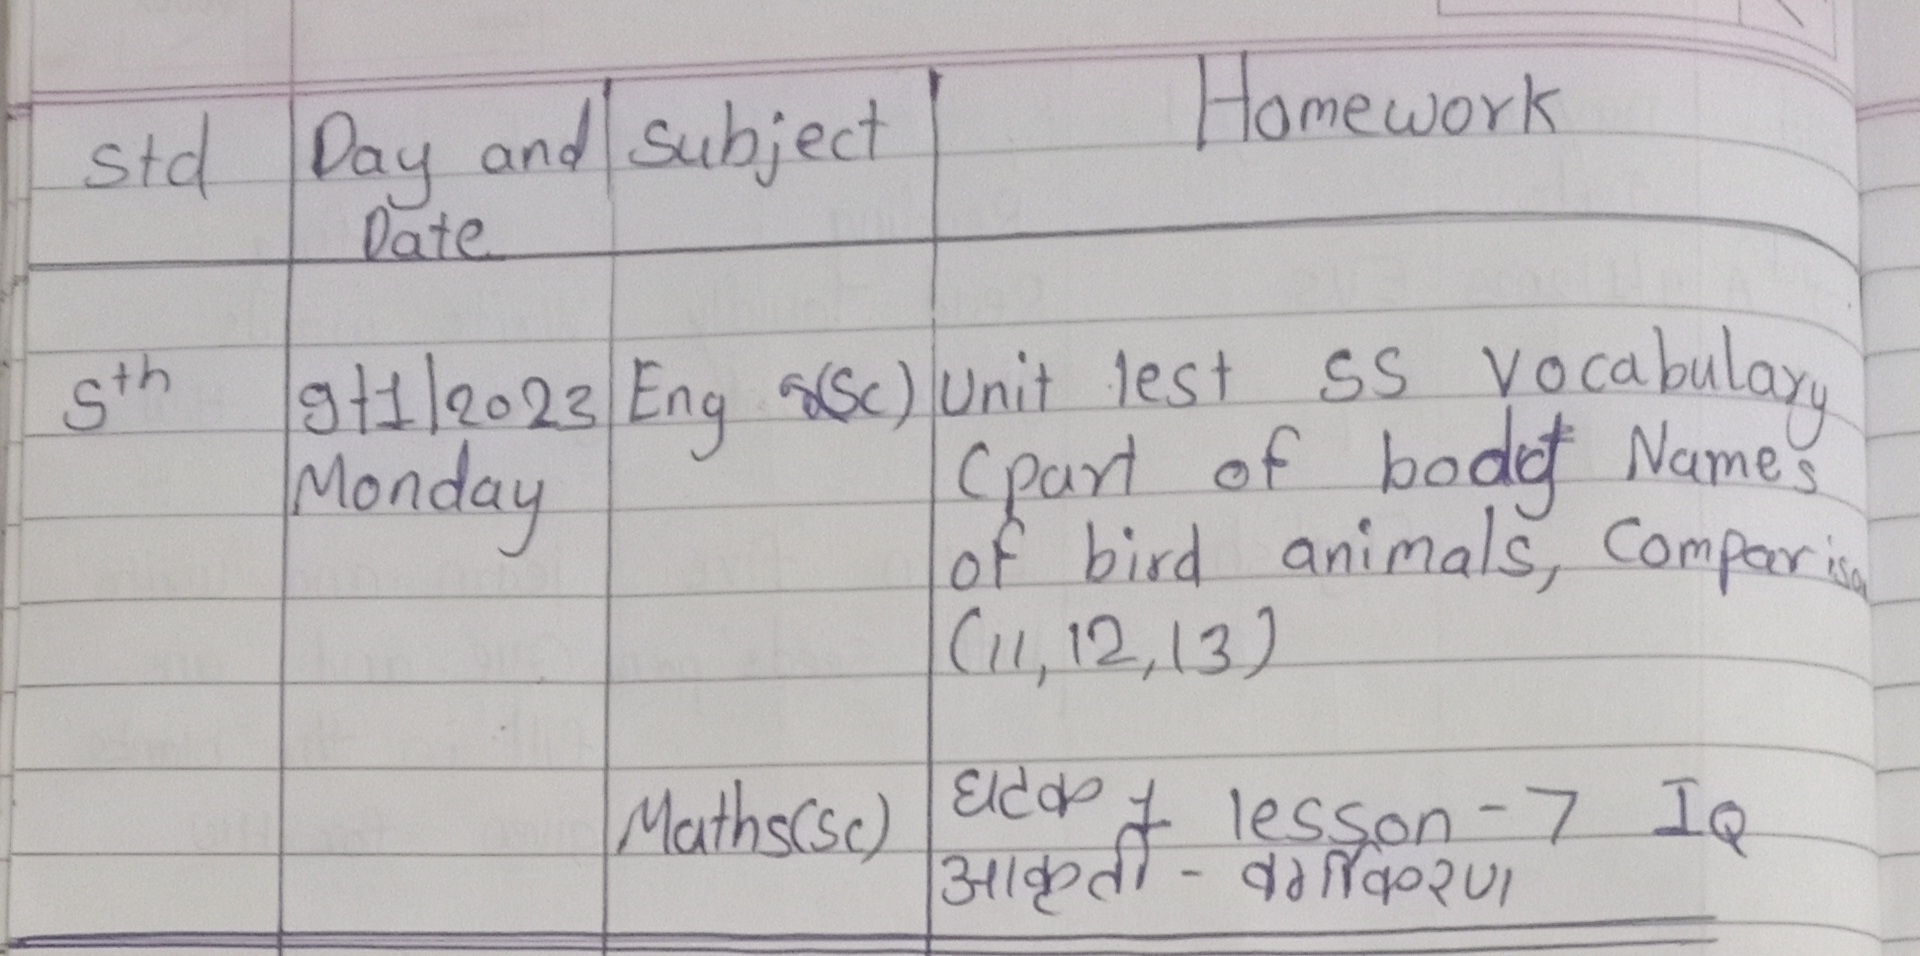 Std Day and Subject Homework
Date
5th 9/1/2023 Eng (Sc) Unit Test SS Vocabulary
Monday (part of body Names
of bird animals, Comparison
(11, 12, 13)
Maths(SC) घटक lesson - 7 IQ
आकृती - वर्गीकरण